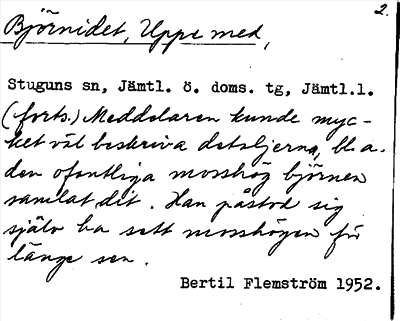 2.
Björnidet, Uppe med,
Stuguns sn, Jämtl. ö. doms. tg, Jämtl.l.
(forts.) Meddelaren kunde myc-
ket väl beskriva detaljerna, bl.a.
den ofantliga mosshög björnen
samlat dit. Han påstod sig
själv ha sett mosshögen för
länge sen.
Bertil Flemström 1952.